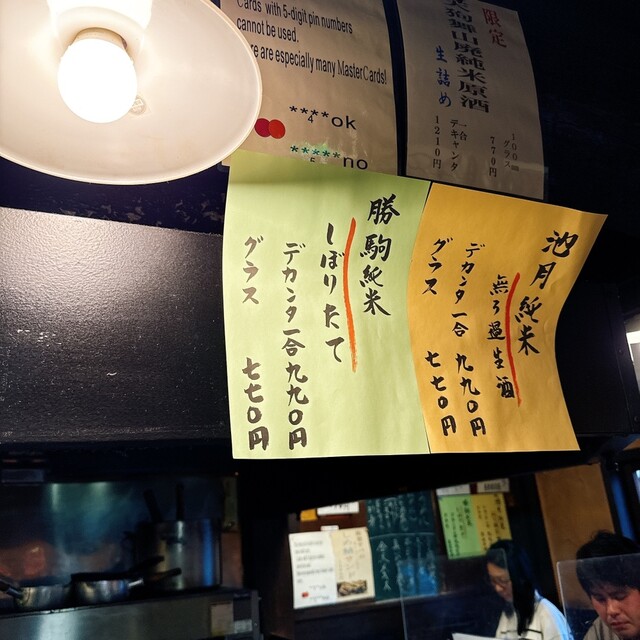 Cards with 5-digit pin numbers
cannot be used,
are especially many MasterCards!
****ok
4
*****no
5
限定
天狗舞山廃純米原酒
生詰め
グラス
770円
デキャンタ
一合
1210円
池月純米
無ろ過生酒
デカンタ一合 九九〇円
グラス 七七〇円
勝駒純米
しぼりたて
デカンタ一合 九九〇円
グラス 七七〇円